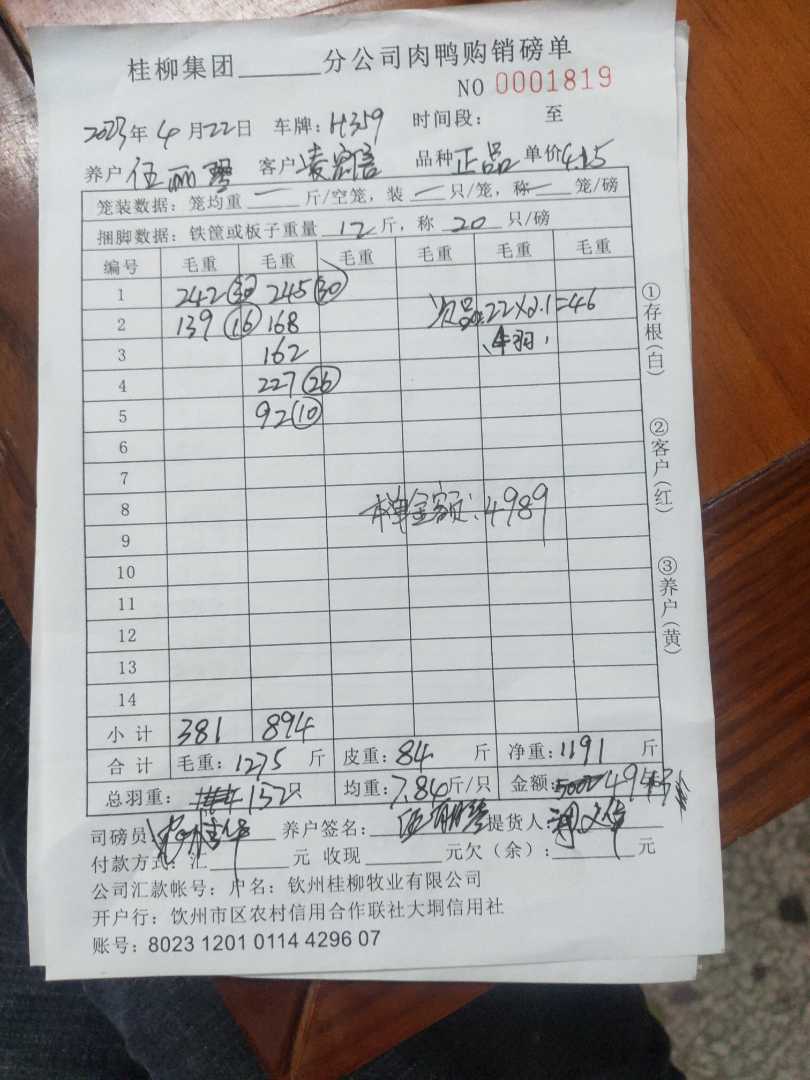 桂柳集团______分公司肉鸭购销磅单
NO 0001819
2023年4月22日 车牌:H359 时间段: 至
养户 伍丽 客户 凌 品种 正品 单价4.15
笼装数据:笼均重 一 斤/空笼,装 一 只/笼,称 一 笼/磅
捆脚数据:铁筐或板子重量 12 斤,称 20 只/磅
编号 毛重 毛重 毛重 毛重 毛重 毛重
1 242 (30) 245 (30)
2 139 (16) 168 次品:22×2.1=46
3 162
4 227 (26)
5 92 (10)
6
7
8 本单金额:4989
9
10
11
12
13
14
小计 381 894
合计 毛重:1275 斤 皮重:84 斤 净重:1191 斤
总羽重: 152只 均重:7.84斤/只 金额:5002 4943
司磅员 养户签名: 提货人:
付款方式:汇______元 收现______元欠(余):______元
公司汇款帐号:户名:钦州桂柳牧业有限公司
开户行:饮州市区农村信用合作联社大垌信用社
账号:8023 1201 0114 4296 07
①存根(白) ②客户(红) ③养户(黄)